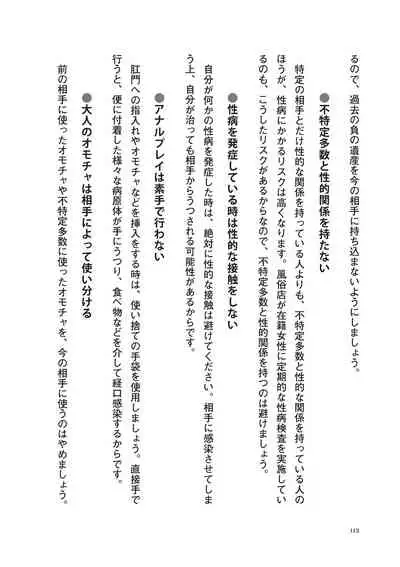 るので、過去の負の遺産を今の相手に持ち込まないようにしましょう。
●不特定多数と性的関係を持たない
特定の相手とだけ性的な関係を持っている人よりも、不特定多数と性的な関係を持っている人の
ほうが、性病にかかるリスクは高くなります。風俗店が在籍女性に定期的な性病検査を実施してい
るのも、こうしたリスクがあるからなので、不特定多数と性的関係を持つのは避けましょう。
●性病を発症している時は性的な接触をしない
自分が何かの性病を発症した時は、絶対に性的な接触は避けてください。相手に感染させてしま
う上、自分が治っても相手からうつされる可能性があるからです。
●アナルプレイは素手で行わない
肛門への指入れやオモチャなどを挿入をする時は、使い捨ての手袋を使用しましょう。直接手で
行うと、便に付着した様々な病原体が手にうつり、食べ物などを介して経口感染するからです。
●大人のオモチャは相手によって使い分ける
前の相手に使ったオモチャや不特定多数に使ったオモチャを、今の相手に使うのはやめましょう。
113